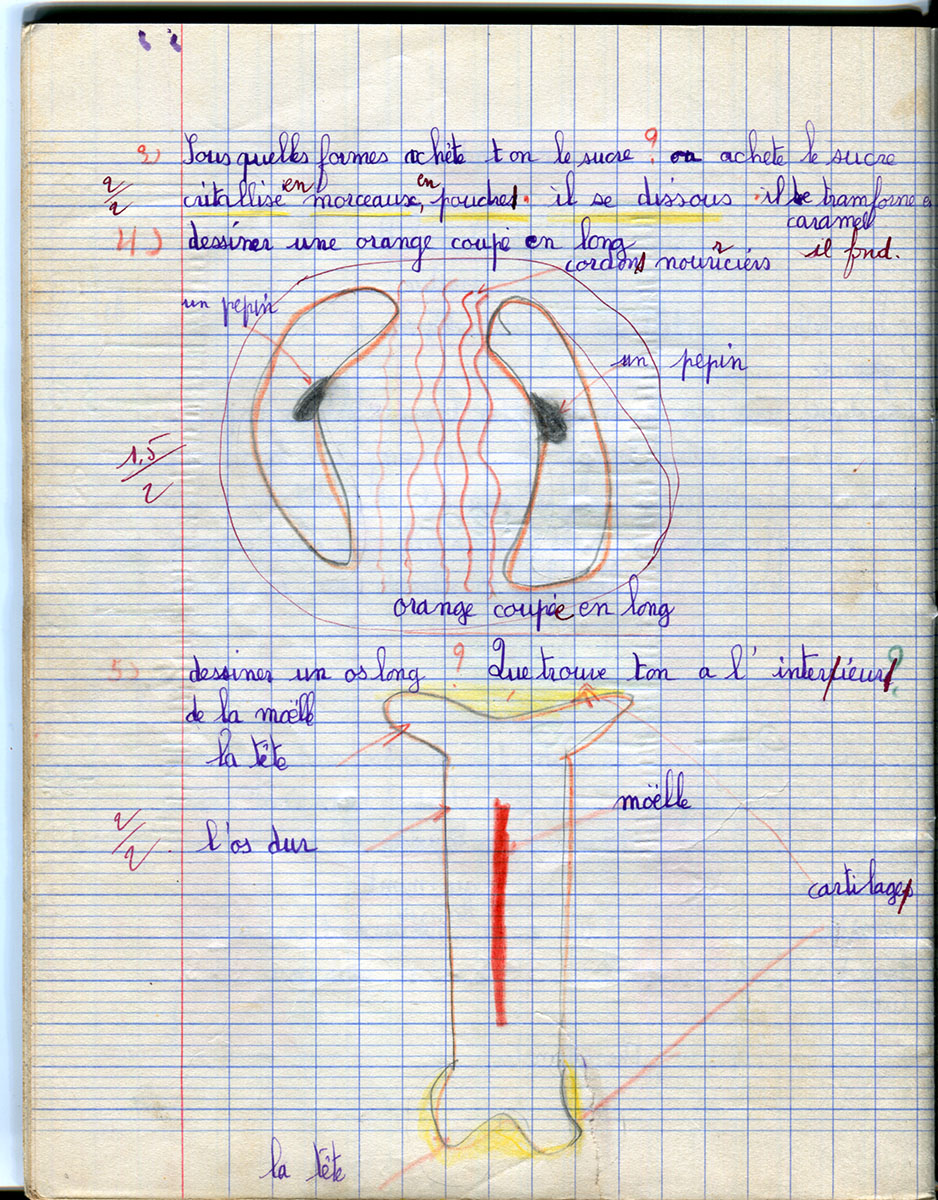 3) Sous quelles formes achète ton le sucre ? on achete le sucre
2/2 cristallisé en morceaux, en poudre. il se dissous. il se tramforme en
caramel
4) dessiner une orange coupé en long il fond.
cordons nourriciers
un pepin
un pepin
1,5/2
orange coupée en long
5) dessiner un os long ? Que trouve ton a l'interieur ?
de la moëlle
la tête
moëlle
2/2 l'os dur
cartilage
la tête